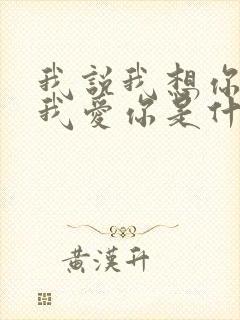 我說我想你
我愛你是什
黃漢升